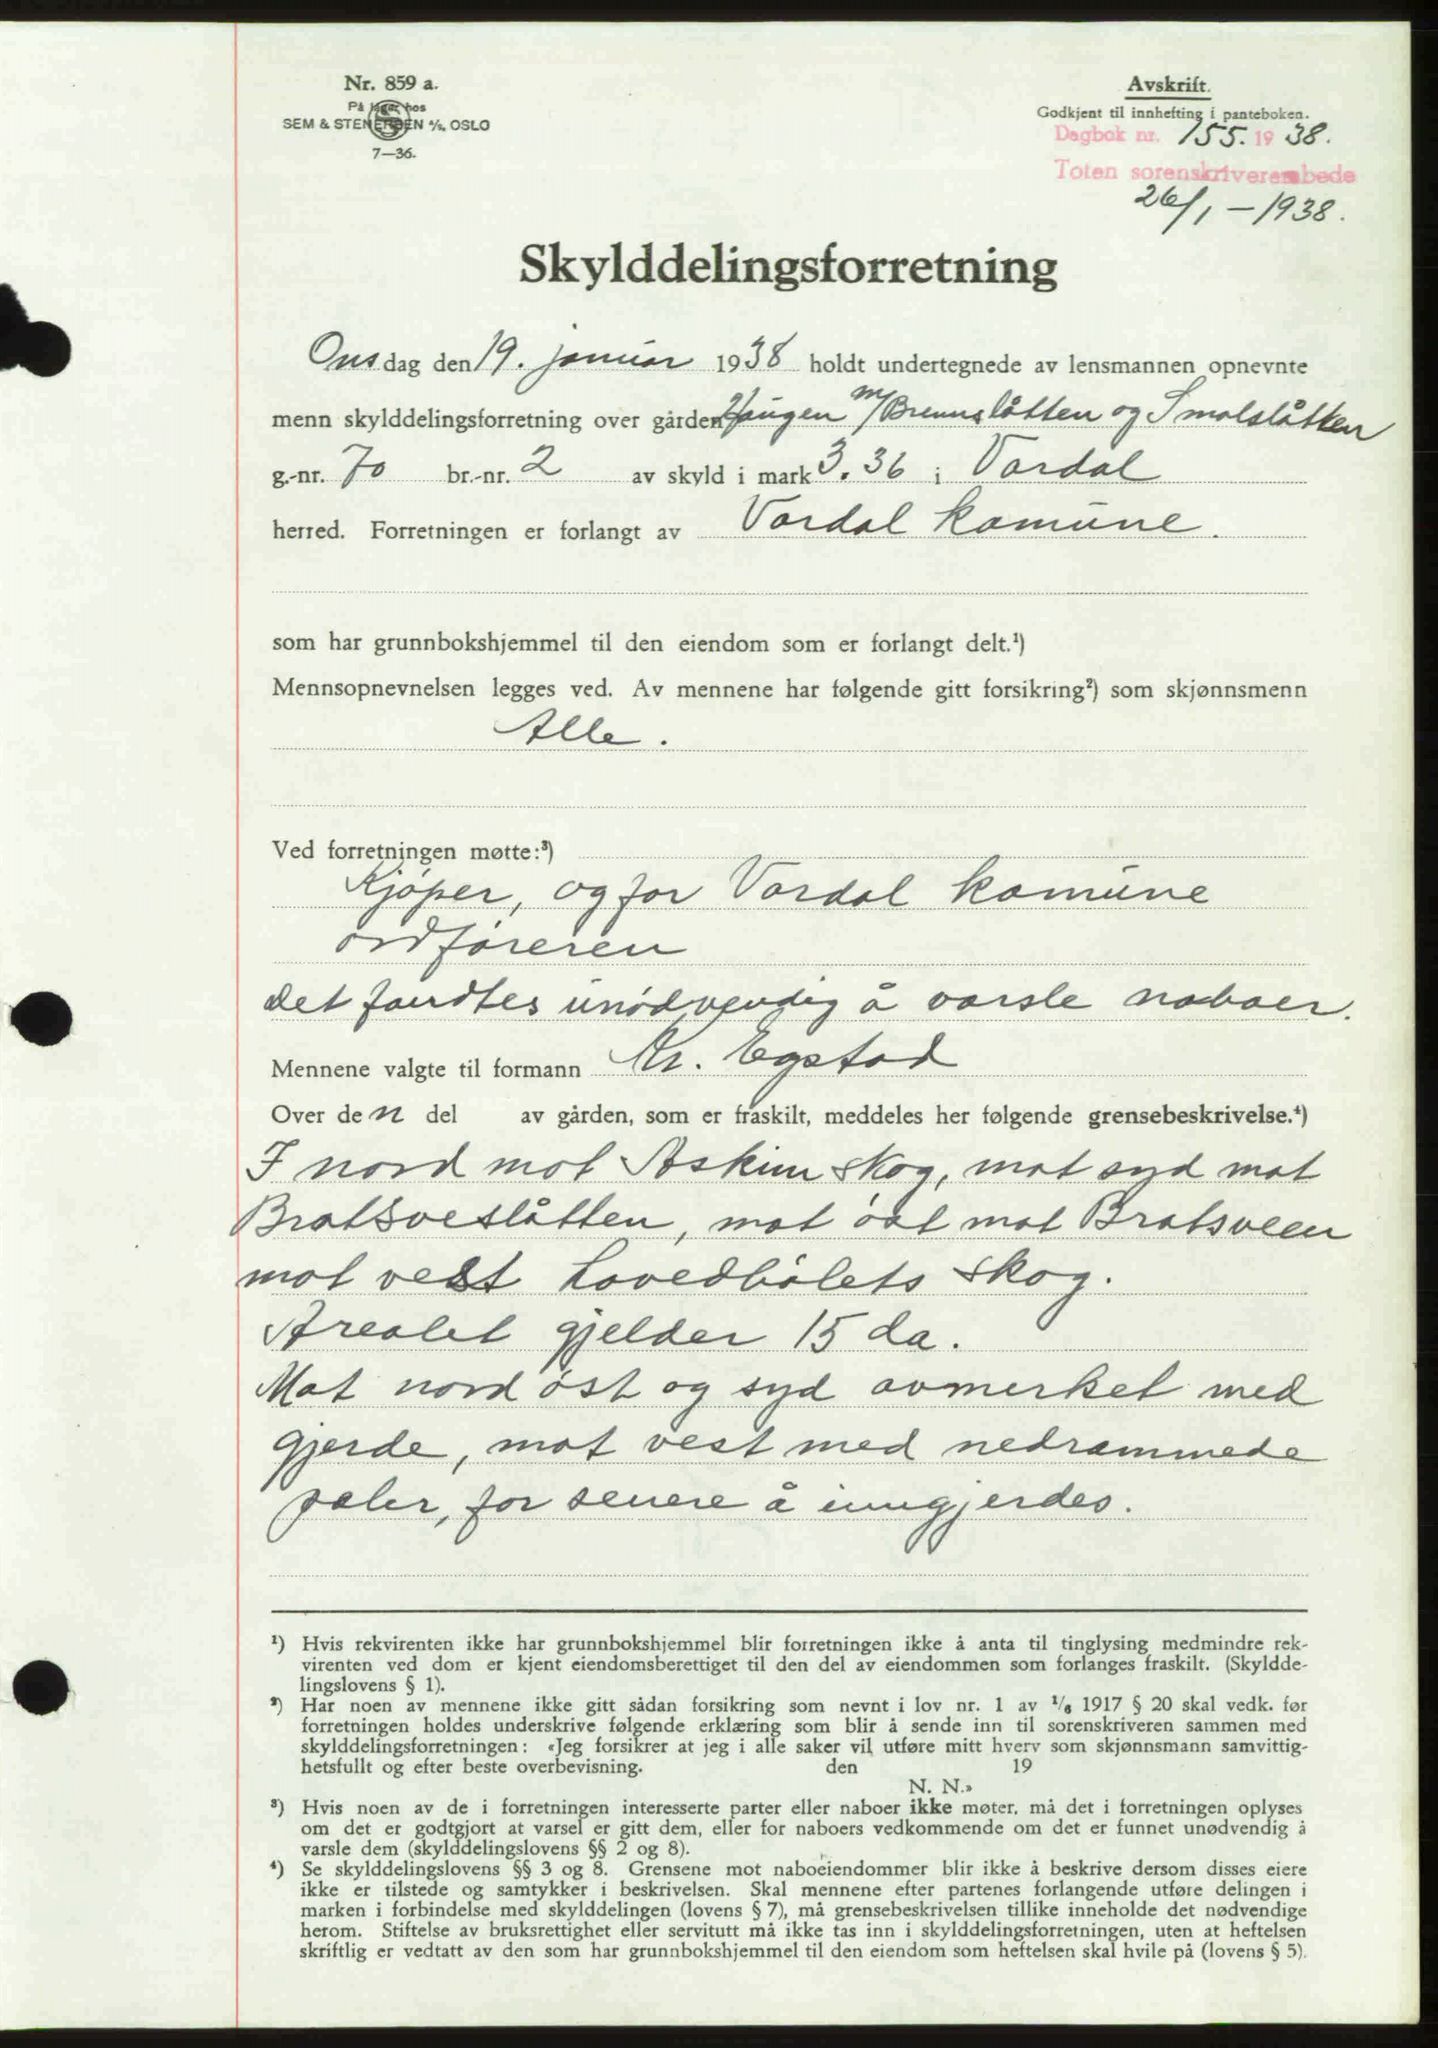 Nr. 859 a.
På lager hos
SEM & STENERSEN A/S, OSLO
7—36.
Avskrift.
Godkjent til innhefting i panteboken.
Dagbok nr. 155. 1938.
Toten sorenskriverembede
26/1 - 1938.
Skylddelingsforretning
Onsdag den 19. januar 1938 holdt undertegnede av lensmannen opnevnte
menn skylddelingsforretning over gården Haugen m/Brennslåtten og Smalslåtten
g.-nr. 70 br.-nr. 2 av skyld i mark 3.36 i Vardal
herred. Forretningen er forlangt av Vardal komune.
som har grunnbokshjemmel til den eiendom som er forlangt delt.¹)
Mennsopnevnelsen legges ved. Av mennene har følgende gitt forsikring²) som skjønnsmenn
Alle.
Ved forretningen møtte:³)
Kjøper, og for Vardal komune
ordføreren
Det fandtes unødvendig å varsle naboer.
Mennene valgte til formann Kr. Egstad
Over den del av gården, som er fraskilt, meddeles her følgende grensebeskrivelse.⁴)
I nord mot Askim skog, mot syd mot
Bratsveslåtten, mot øst mot Bratsveen
mot vest Lovedbølets skog.
Arealet gjelder 15 da.
Mot nord øst og syd avmerket med
gjerde, mot vest med nedrammede
pæler, for senere å inngjerdes.
¹) Hvis rekvirenten ikke har grunnbokshjemmel blir forretningen ikke å anta til tinglysing medmindre rek-
virenten ved dom er kjent eiendomsberettiget til den del av eiendommen som forlanges fraskilt. (Skyldde-
lingslovens § 1).
²) Har noen av mennene ikke gitt sådan forsikring som nevnt i lov nr. 1 av 1/6 1917 § 20 skal vedk. før
forretningen holdes underskrive følgende erklæring som blir å sende inn til sorenskriveren sammen med
skylddelingsforretningen: «Jeg forsikrer at jeg i alle saker vil utføre mitt hverv som skjønnsmann samvittig-
hetsfullt og efter beste overbevisning. den 19
N. N.»
³) Hvis noen av de i forretningen interesserte parter eller naboer ikke møter, må det i forretningen oplyses
om det er godtgjort at varsel er gitt dem, eller for naboers vedkommende om det er funnet unødvendig å
varsle dem (skylddelingslovens §§ 2 og 8).
⁴) Se skylddelingslovens §§ 3 og 8. Grensene mot naboeiendommer blir ikke å beskrive dersom disses eiere
ikke er tilstede og samtykker i beskrivelsen. Skal mennene efter partenes forlangende utføre delingen i
marken i forbindelse med skylddelingen (lovens § 7), må grensebeskrivelsen tillike inneholde det nødvendige
herom. Stiftelse av bruksrettighet eller servitutt må ikke tas inn i skylddelingsforretningen, uten at heftelsen
skriftlig er vedtatt av den som har grunnbokshjemmel til den eiendom som heftelsen skal hvile på (lovens § 5).